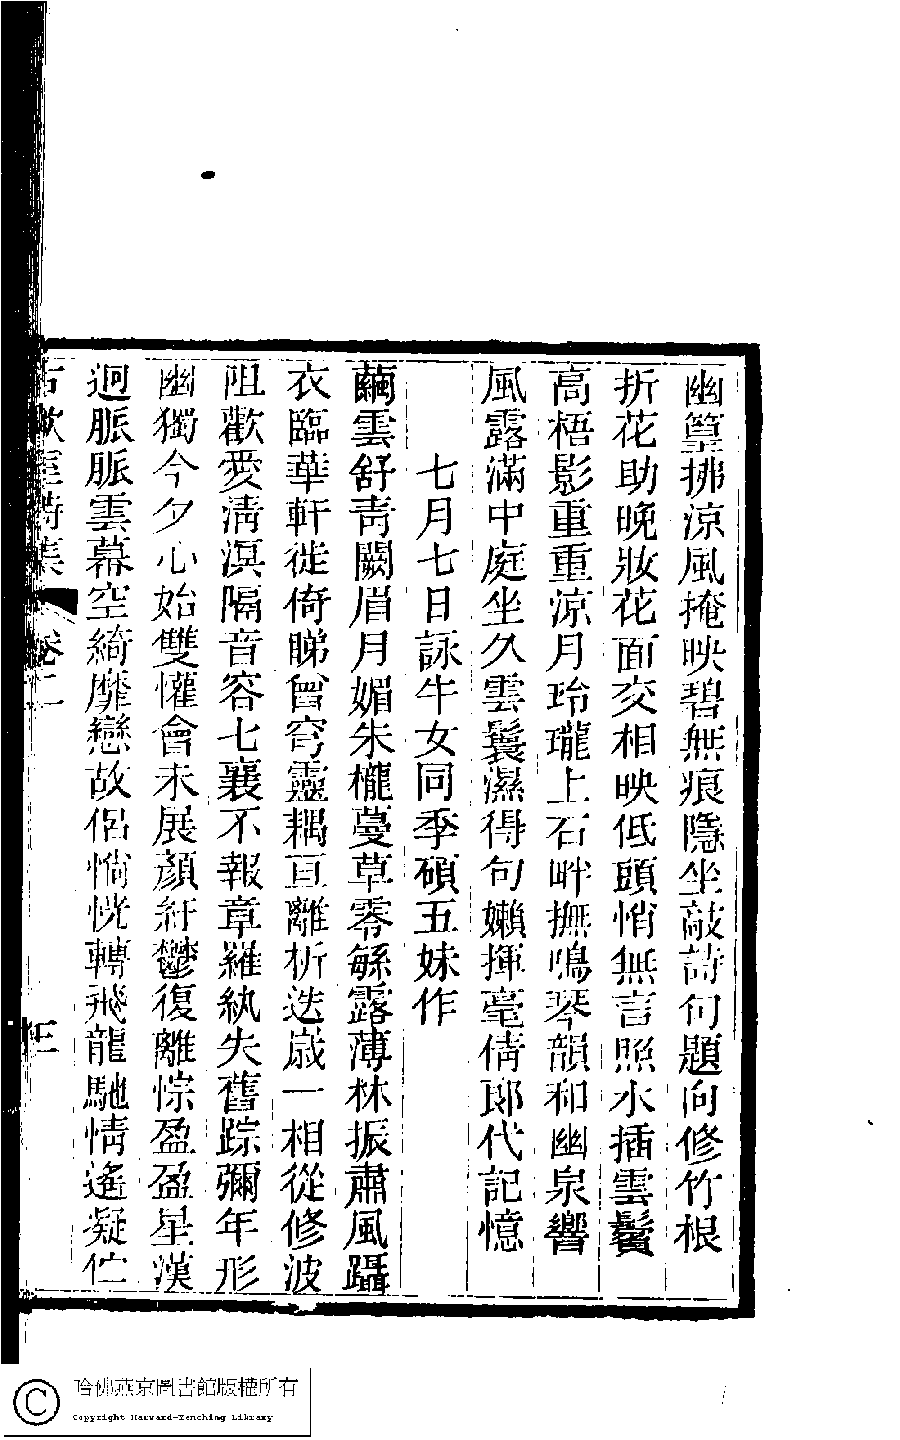 幽篁拂涼風掩映碧無痕隱坐敲詩句題向修竹根
折花助晚妝花面交相映低頭悄無言照水插雲鬢
高梧影重重涼月玲瓏上石畔撫鳴琴韻和幽泉響
風露滿中庭坐久雲鬟濕得句嬾揮毫倩郎代記憶
七月七日詠牛女同季碩五妹作
蘭雲舒青闕眉月媚朱櫳蔓草零緐露薄林振肅風躡
衣臨華軒徙倚睇曾穹靈耦亘離析迭歲一相從修波
阻歡愛清溟隔音容七襄不報章羅紈失舊踪彌年形
幽獨今夕心始雙懽會未展顏紆鬱復離悰盈盈星漢
迴脈脈雲幕空綺靡戀故侶惝恍轉飛龍馳情遙凝伫
古歡室詩集 卷二 三
哈佛燕京圖書館版權所有
Copyright Harvard-Yenching Library